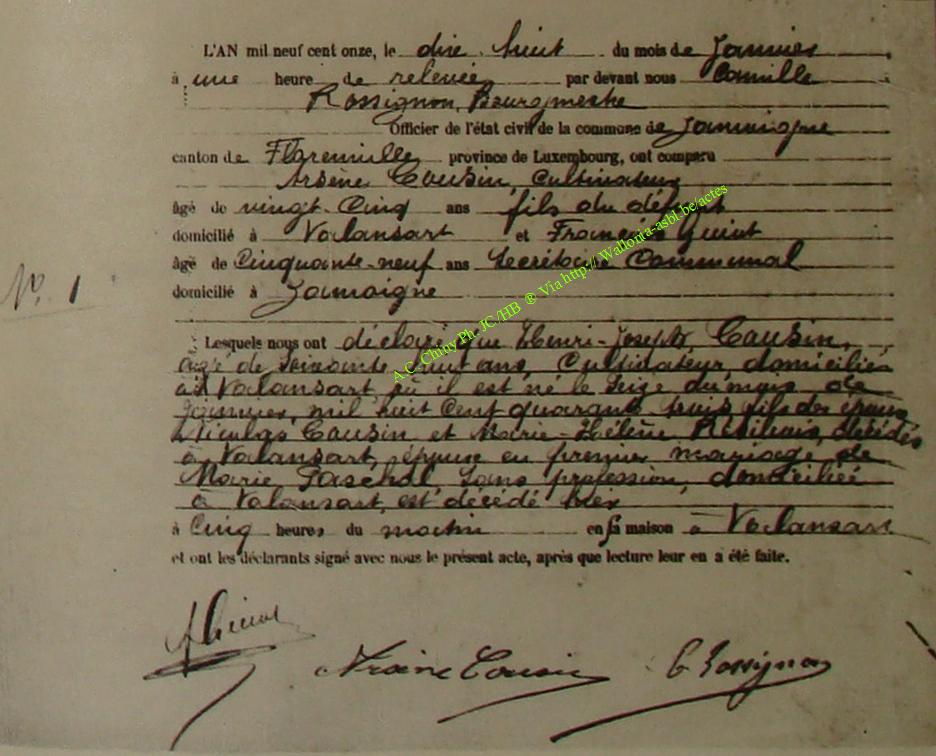 L'AN mil neuf cent onze, le dix-huit du mois de Janvier
à une heure de relevée par devant nous Camille
Rossignon, Bourgmestre
Officier de l'état civil de la commune de Jamoigne
canton de Florenville province de Luxembourg, ont comparu
Arsène Cousin, Cultivateur
âgé de vingt-cinq ans fils du défunt
domicilié à Valansart et François Guiot
âgé de Cinquante-neuf ans Secrétaire Communal
N°. 1
domicilié à Jamoigne
Lesquels nous ont déclaré que Henri-Joseph Cousin,
âgé de Soixante huit ans, Cultivateur, domicilié
à Valansart, où il est né le Seize du mois de
Janvier, mil huit Cent quarante trois, fils des époux
Nicolas Cousin et Marie-Hélène décédés
à Valansart, époux en premier mariage de
Marie Paschal, Sans profession, domiciliée
à Valansart, est décédé hier
à Cinq heures du matin en sa maison à Valansart
et ont les déclarants signé avec nous le présent acte, après que lecture leur en a été faite.
Arsène Cousin C Rossignon
A.C. Chiny Ph. JC /HB ® Via http://Wallonia-asbl.be/actes